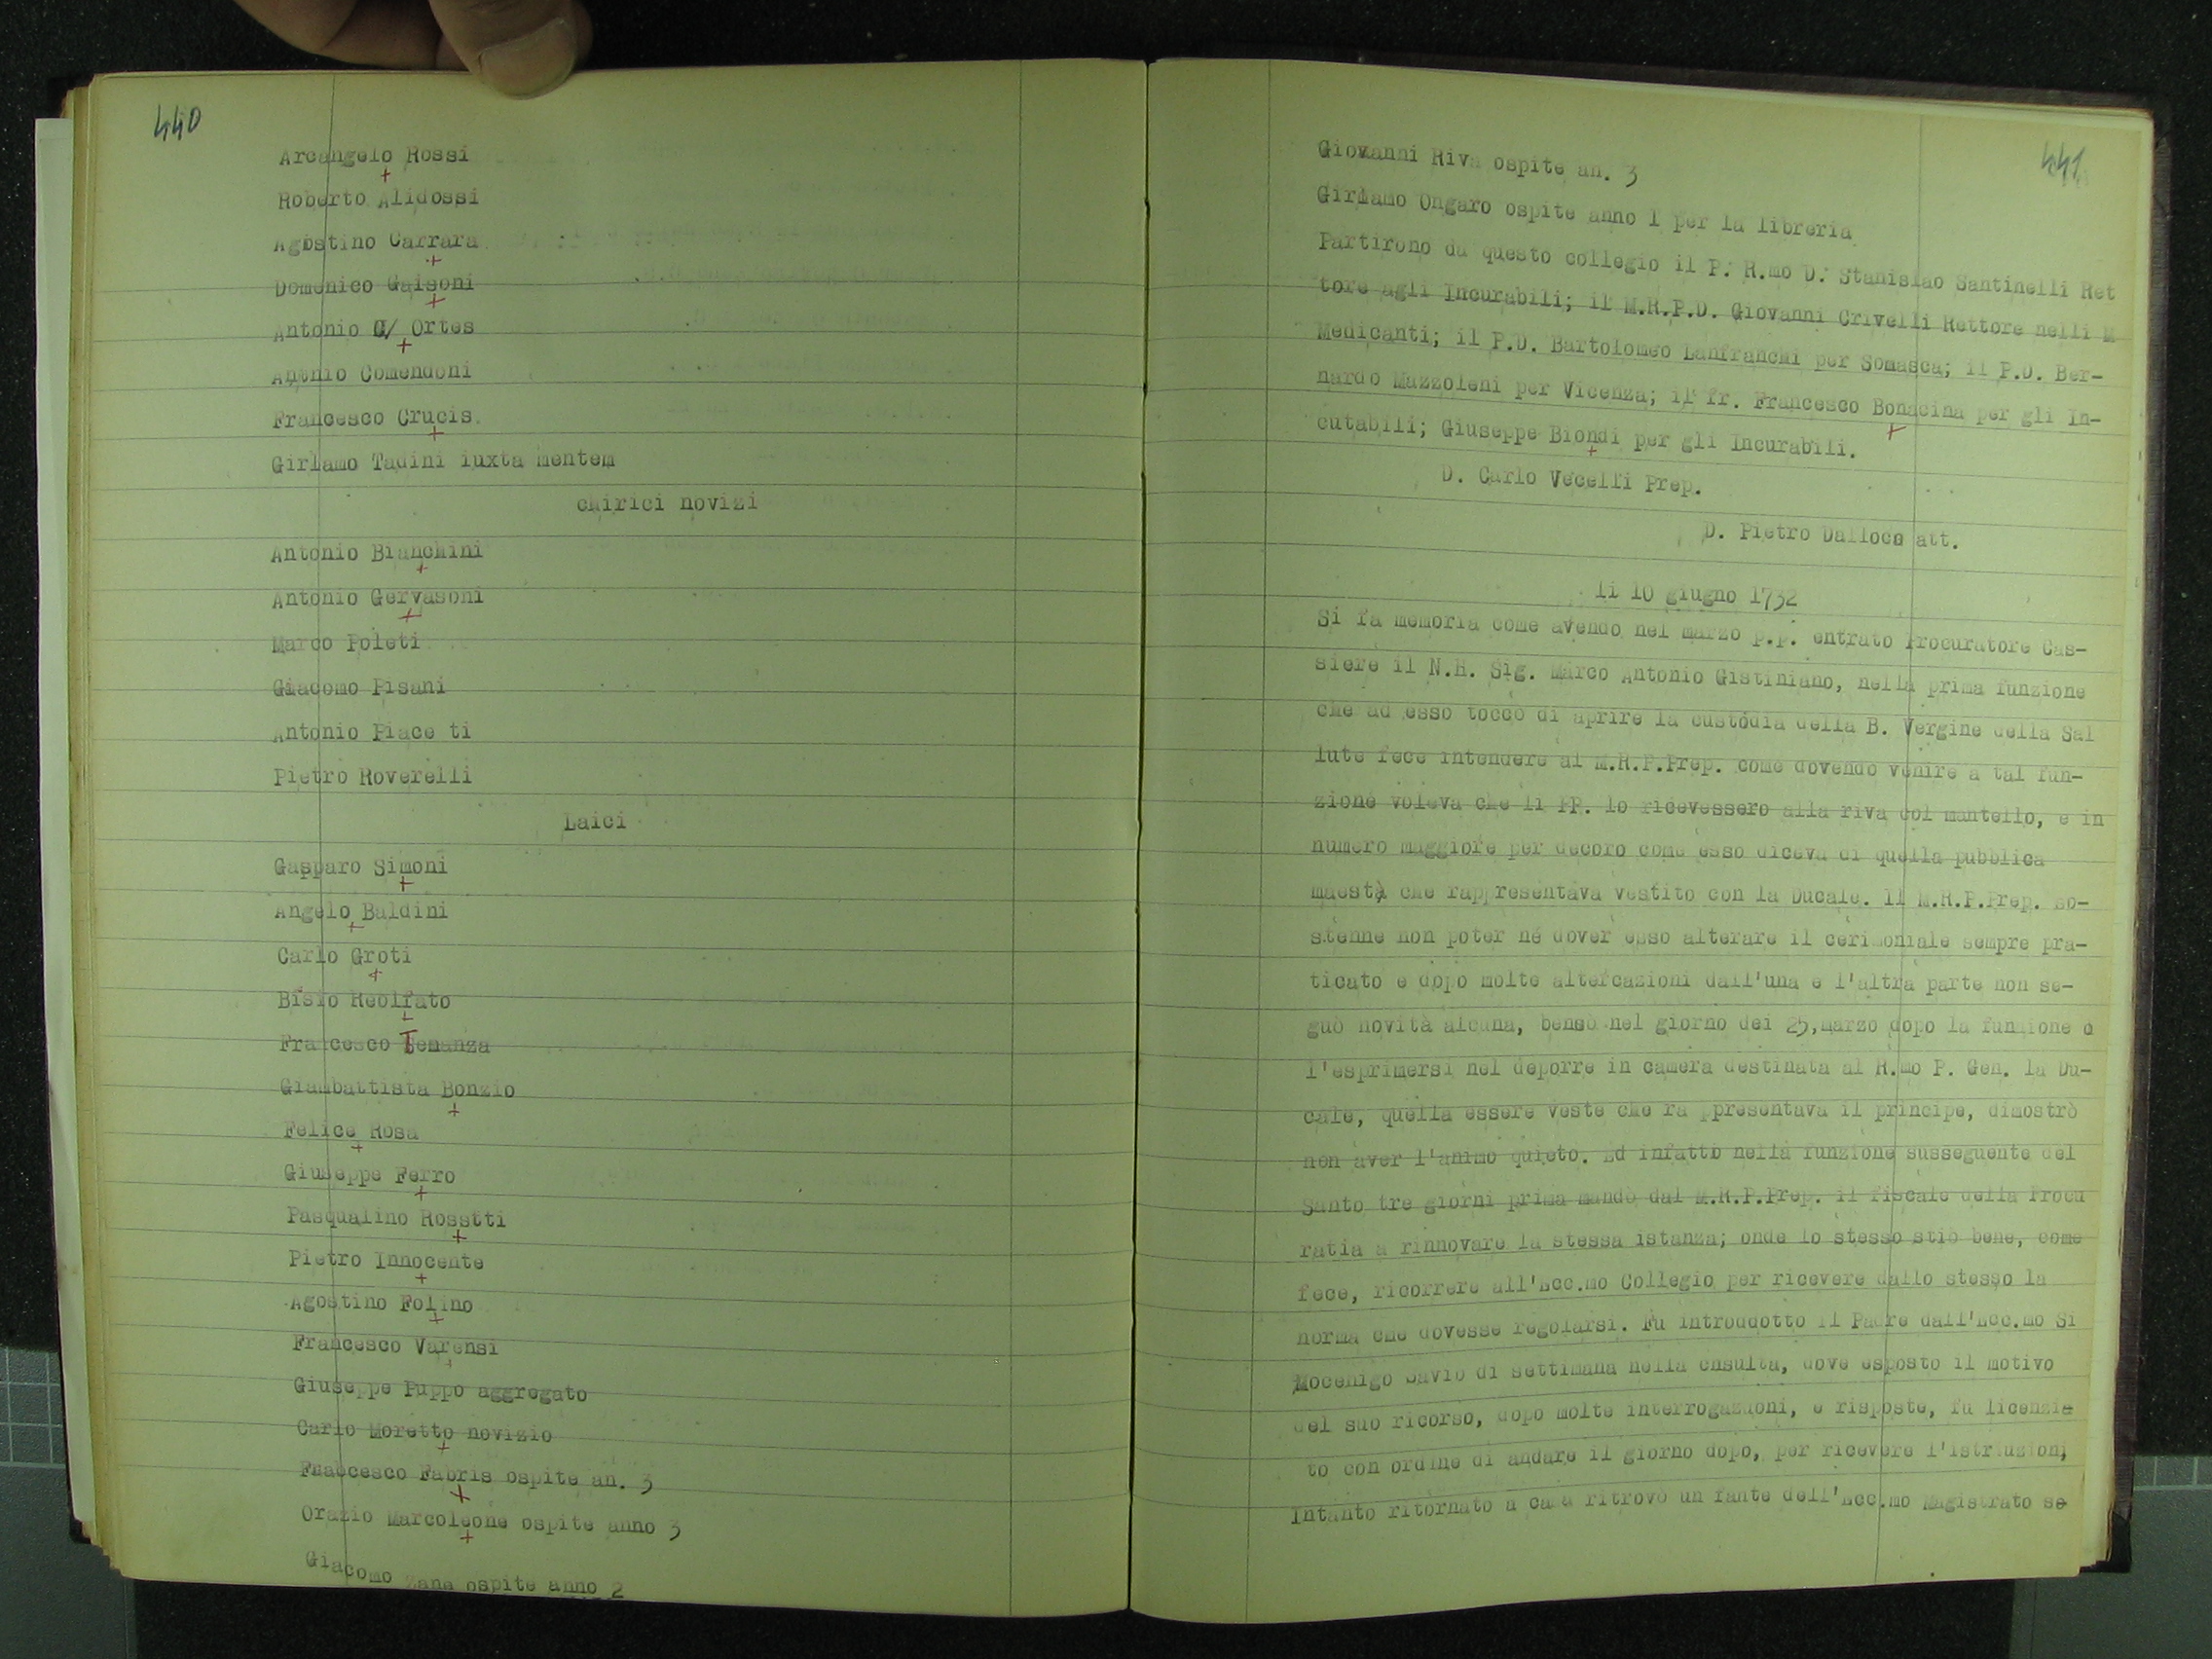 440
Arcangelo Rossi
+
Roberto Alidossi
Agostino Carrara
+
Domenico Gaisoni
+
Antonio G/ Ortes
+
Antonio Comendoni
Francesco Crucis.
+
Girlamo Tadini iuxta mentem
chirici novizi
Antonio Bianchini
+
Antonio Gervasoni
+
Marco Poleti
Giacomo Pisani
Antonio Piace ti
Pietro Roverelli
Laici
Gasparo Simoni
+
Angelo Baldini
+
Carlo Groti
+
Bisio Reolfato
+
Francesco Temanza
Giambattista Bonzio
+
Felice Rosa
+
Giuseppe Ferro
+
Pasqualino Rosstti
+
Pietro Innocente
+
Agostino Folino
+
Francesco Varensi
+
Giuseppe Puppo aggregato
Carlo Moretto novizio
+
Fnabcesco Fabris ospite an. 3
+
Orazio Marcoleone ospite anno 3
+
Giacomo Zana ospite anno 2
441
Giovanni Riva ospite an. 3
Girlamo Ongaro ospite anno 1 per la libreria
Partirono da questo collegio il P. R.mo D. Stanislao Santinelli Ret
tore agli Incurabili; il M.R.P.D. Giovanni Crivelli Rettore nelli M
Medicanti; il P.D. Bartolomeo Lanfranchi per Somasca; il P.D. Ber-
nardo Mazzoleni per Vicenza; il fr. Francesco Bonacina per gli In-
+
cutabili; Giuseppe Biondi per gli Incurabili.
+
D. Carlo Vecelli Prep.
D. Pietro Dalloca att.
li 10 giugno 1732
Si fa memoria come avendo nel marzo p.p. entrato Procuratore Cas-
siere il N.H. Sig. Marco Antonio Gistiniano, nella prima funzione
che ad esso toccò di aprire la custodia della B. Vergine della Sal
lute fece intendere al M.R.P.Prep. come dovendo venire a tal fun-
zione voleva che li PP. lo ricevessero alla riva col mantello, e in
numero maggiore per decoro come esso diceva di quella pubblica
maestà che rappresentava vestito con la Ducale. Il M.R.P.Prep. so-
stenne non poter né dover esso alterare il cerimoniale sempre pra-
ticato e dopo molte altercazioni dall'una e l'altra parte non se-
guò novità alcuna, bensò nel giorno dei 25,marzo dopo la funzione
l'esprimersi nel deporre in camera destinata al R.mo P. Gen. la Du-
cale, quella essere veste che ra ppresentava il principe, dimostrò
non aver l'animo quieto. Ed infatti nella funzione susseguente del
Santo tre giorni prima mandò dal M.R.P.Prep. il fiscale della Procu
ratia a rinnovare la stessa istanza; onde lo stesso stiò bene, come
fece, ricorrere all'Ecc.mo Collegio per ricevere dallo stesso la
norma che dovesse regolarsi. Fu introdotto il Padre dall'Ecc.mo Si
Mocenigo Savio di settimana nella cnsulta, dove esposto il motivo
del suo ricorso, dopo molte interrogazuoni, e risposte, fu licenzia
to con ordine di andare il giorno dopo, per ricevere l'istruzioni
Intanto ritornato a casa ritrovò un fante dell'Ecc.mo Magistrato se